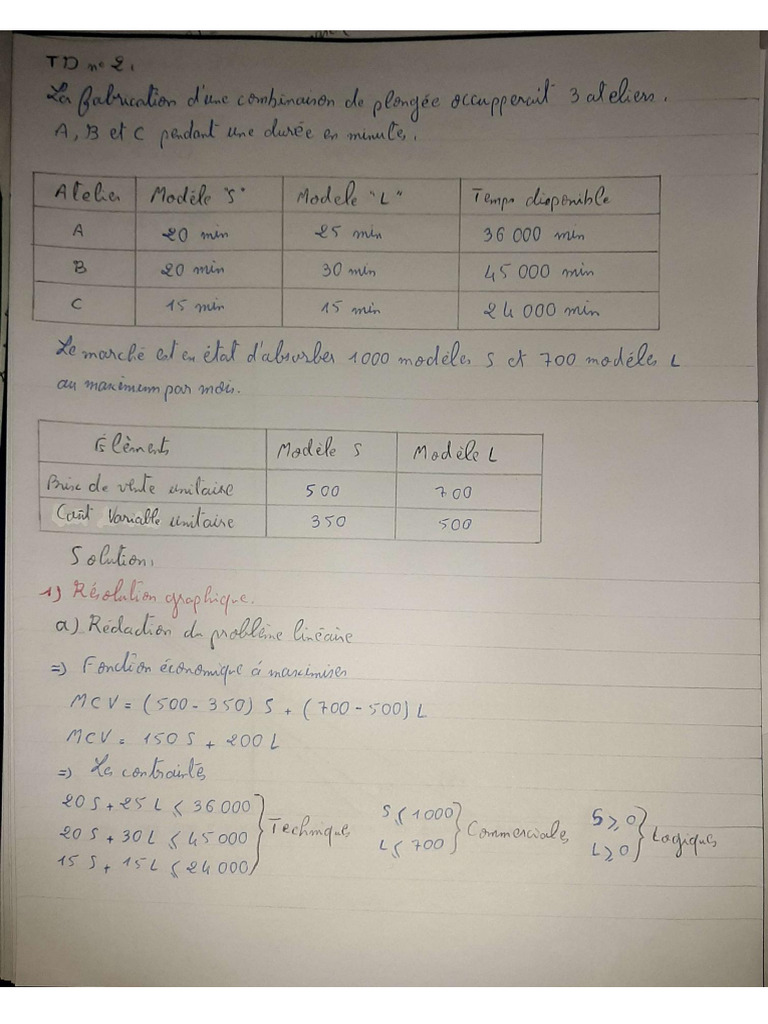 TD n° 2.
La fabrication d'une combinaison de plongée occupperait 3 ateliers.
A, B et C pendant une durée en minutes.
Atelier Modèle "S" Modele "L" Temps disponible
A 20 min 25 min 36 000 min
B 20 min 30 min 45 000 min
C 15 min 15 min 24 000 min
Le marché est en état d'absorber 1000 modèles S et 700 modèles L
au maximum par mois.
Élèments Modèle S Modèle L
Prix de vente unitaire 500 700
Coût Variable unitaire 350 500
Solution.
1) Résolution graphique.
a) Rédaction du problème linéaire
=> Fonction économique à maximiser
MCV = (500 - 350) S + (700 - 500) L
MCV = 150 S + 200 L
=> Les contraintes
20 S + 25 L ≤ 36 000
20 S + 30 L ≤ 45 000 } Technique
15 S + 15 L ≤ 24 000
S ≤ 1000
L ≤ 700 } Commerciales
S ≥ 0
L ≥ 0 } Logiques